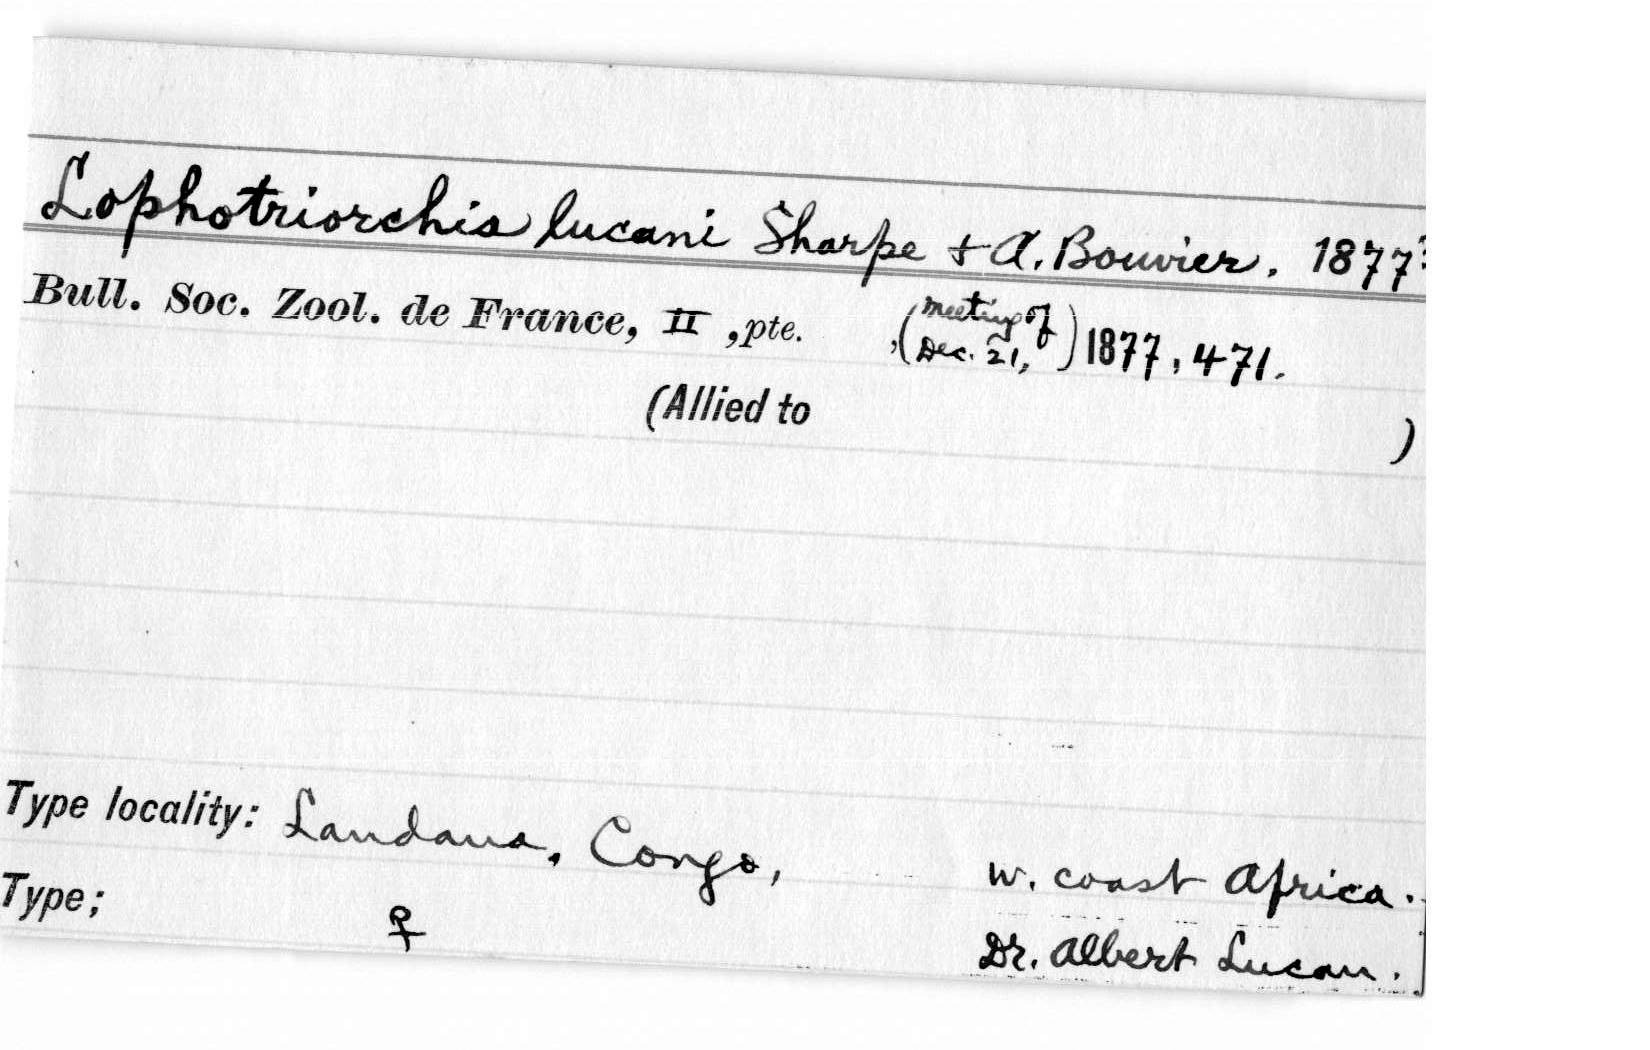 Lophotriorchis lucani Sharpe + A. Bouvier. 1877?
Bull. Soc. Zool. de France, II ,pte. ,(meeting of Dec. 21,) 1877, 471.
(Allied to )
Type locality: Landana, Congo, w. coast Africa.
Type; ♀ Dr. Albert Lucan.